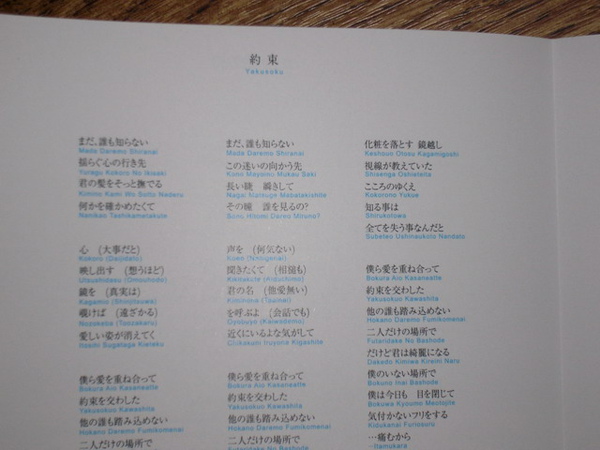 約束
Yakusoku
まだ、誰も知らない
Mada Daremo Shiranai
揺らぐ心の行き先
Yuragu Kokoro No Ikisaki
君の髪をそっと撫でる
Kimino Kami Wo Sotto Naderu
何かを確かめたくて
Nanikao Tashikametakute
心 (大事だと)
Kokoro (Daijidato)
映し出す (想うほど)
Utsushidasu (Omouhodo)
鏡を (真実は)
Kagamio (Shinjitsuwa)
覗けば (遠ざかる)
Nozokeba (Toozakaru)
愛しい姿が消えてく
Itoshii Sugataga Kieteku
僕ら愛を重ね合って
Bokura Aio Kasaneatte
約束を交わした
Yakusokuo Kawashita
他の誰も踏み込めない
Hokano Daremo Fumikomenai
二人だけの場所で
まだ、誰も知らない
Mada Daremo Shiranai
この迷いの向かう先
Kono Mayoino Mukau Saki
長い睫 瞬きして
Nagai Matsuge Mabatakishite
その瞳 誰を見るの?
Sono Hitomi Dareo Miruno?
声を (何気ない)
Koeo (Nanigenai)
聞きたくて (相槌も)
Kikitakute (Aiduchimo)
君の名 (他愛無い)
Kimiinona (Taainai)
を呼ぶよ (会話でも)
Oyobuyo (Kaiwademo)
近くにいるよな気がして
Chikakuni Iruyona Kigashite
僕ら愛を重ね合って
Bokura Aio Kasaneatte
約束を交わした
Yakusokuo Kawashita
他の誰も踏み込めない
Hokano Daremo Fumikomenai
二人だけの場所で
化粧を落とす 鏡越し
Keshouo Otosu Kagamigoshi
視線が教えていた
Shisenga Oshieteita
こころのゆくえ
Kokorono Yukue
知る事は
Shirukotowa
全てを失う事なんだと
Subeteo Ushinaukoto Nandato
僕ら愛を重ね合って
Bokura Aio Kasaneatte
約束を交わした
Yakusokuo Kawashita
他の誰も踏み込めない
Hokano Daremo Fumikomenai
二人だけの場所で
Futaridake No Bashode
だけど君は綺麗になる
Dakedo Kimiwa Kireini Naru
僕のいない場所で
Bokuno Inai Bashode
僕は今日も 目を閉じて
Bokuwa Kyoumo Meotojite
気付かないフリをする
Kidukanai Furiosuru
…痛むから
…Itamukara